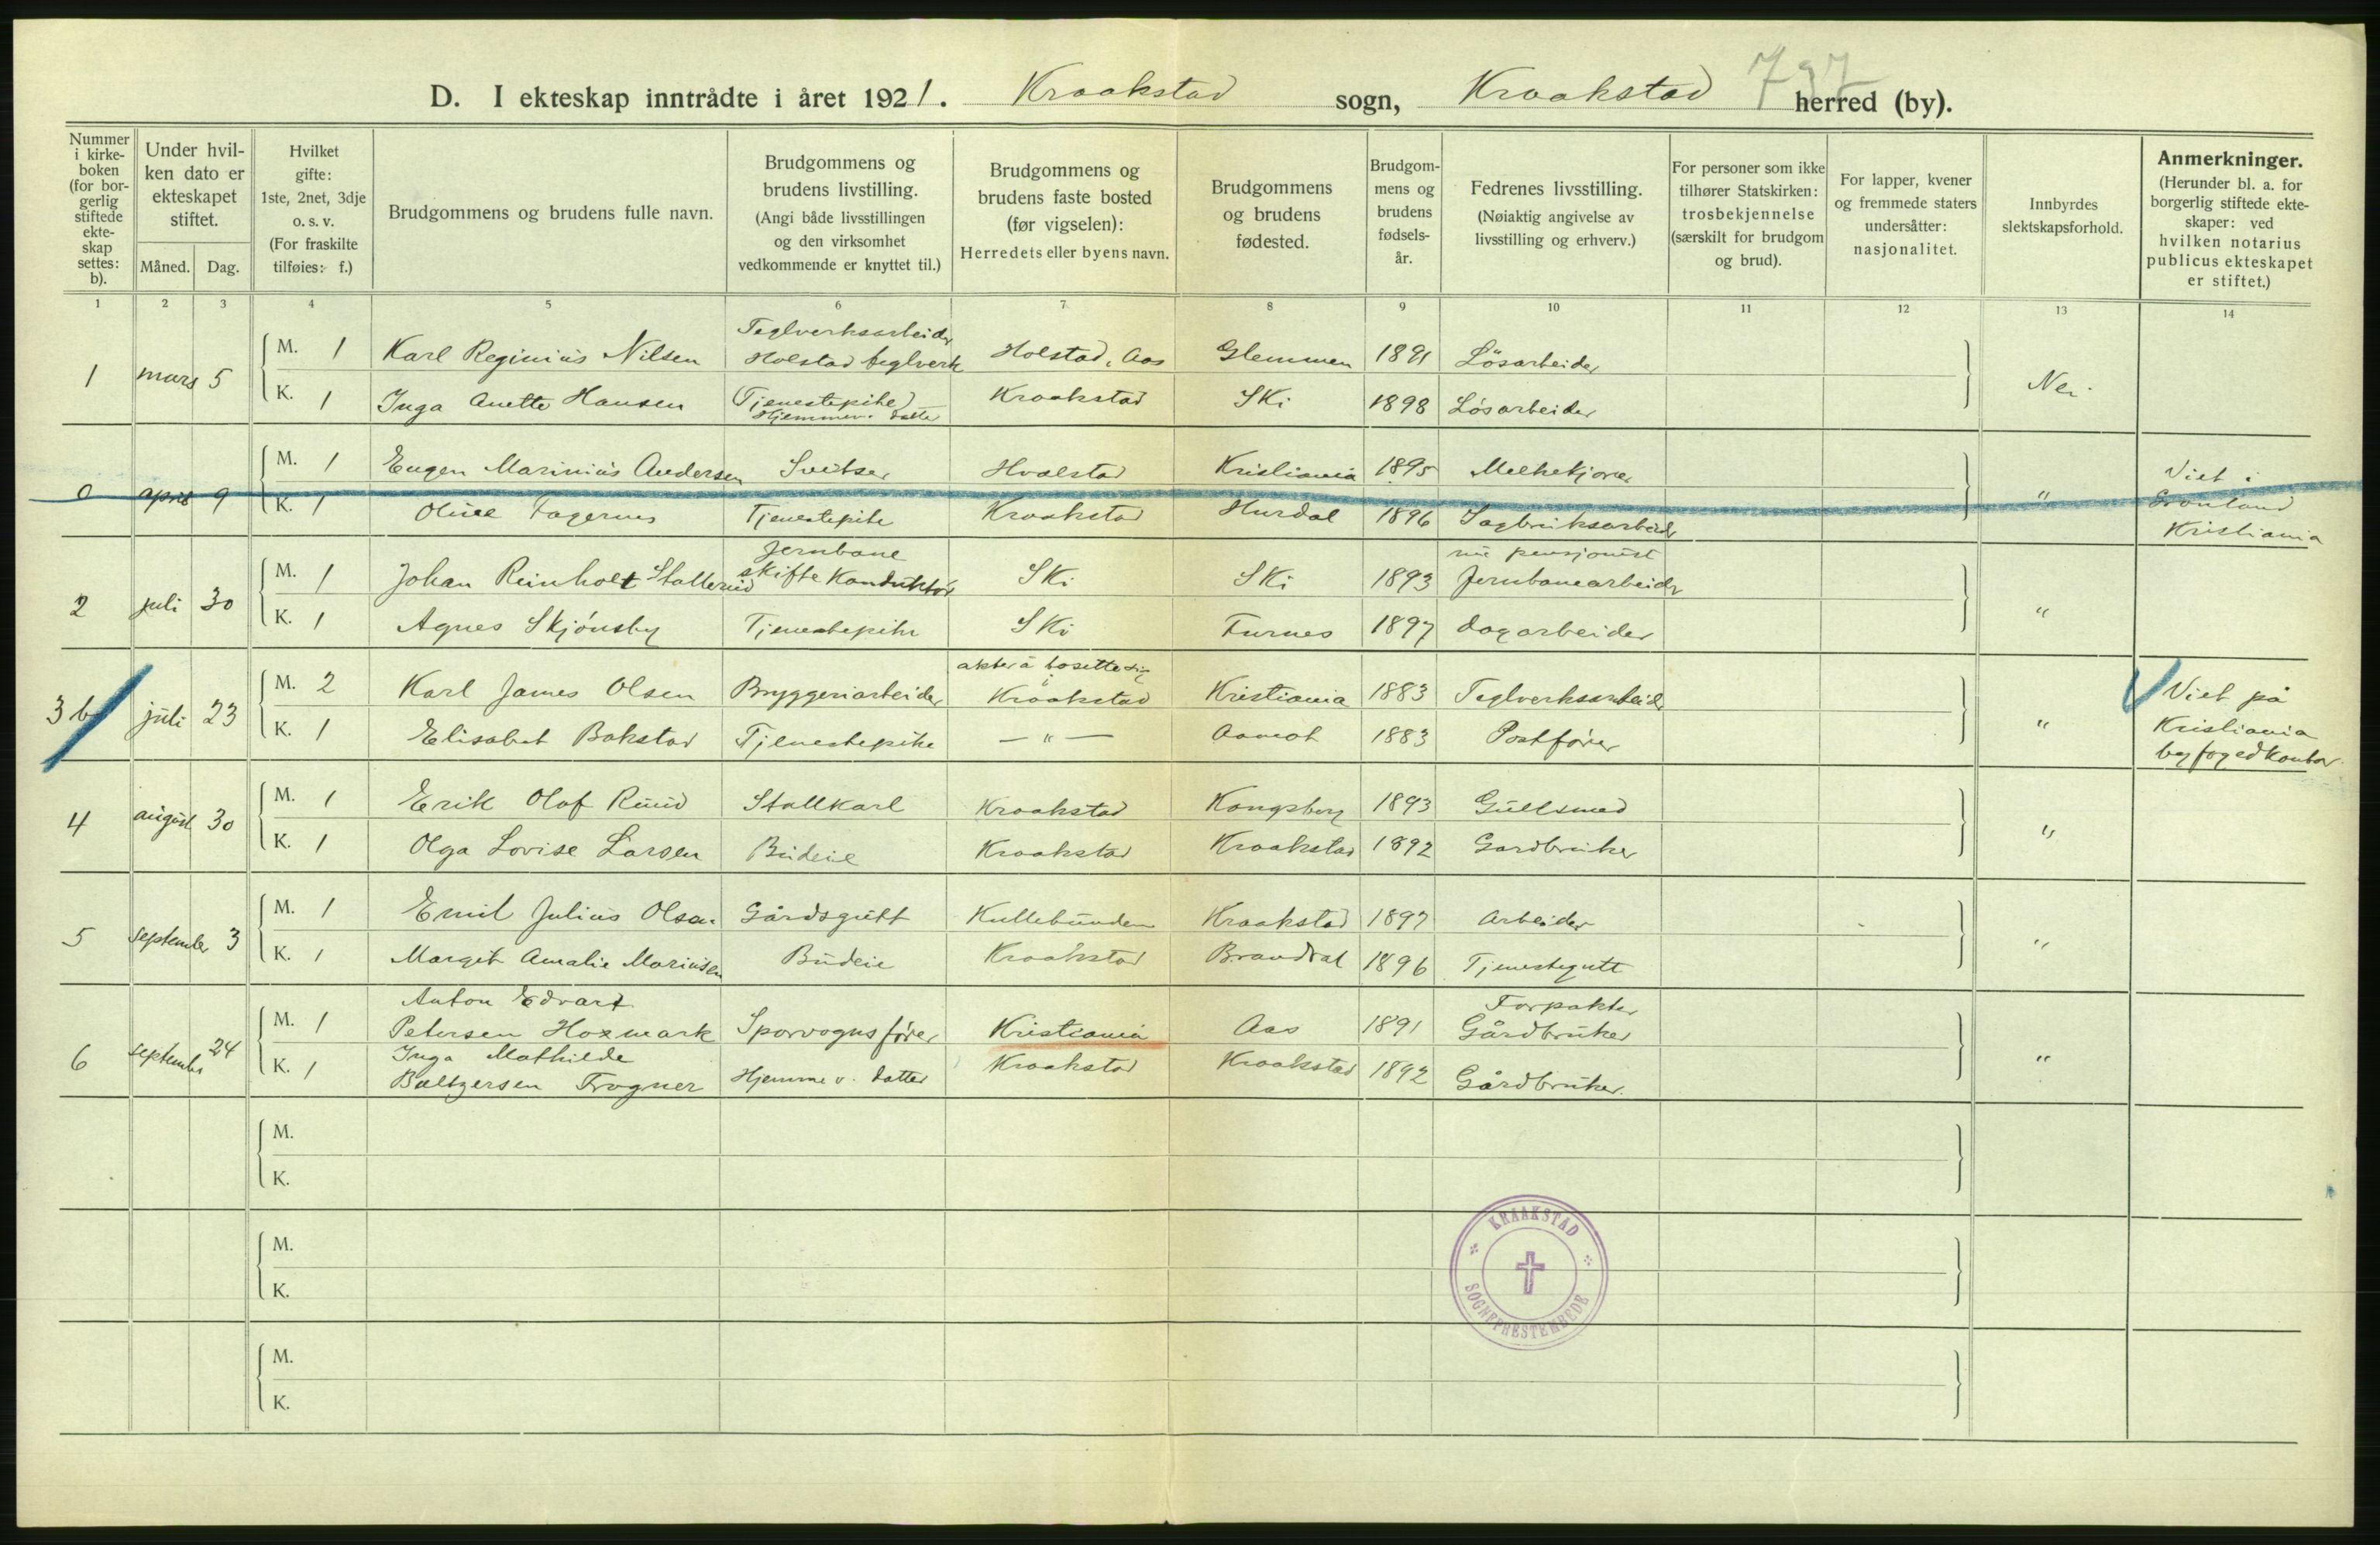 D. I ekteskap inntrådte i året 1921. Kraakstad sogn, Kraakstad herred (by).
797
Nummer i kirke-boken (for bor-gerlig stiftede ekte-skap settes: b).
Under hvil-ken dato er ekteskapet stiftet.
Måned. Dag.
Hvilket gifte: 1ste, 2net, 3dje o. s. v. (For fraskilte tilføies: f.)
Brudgommens og brudens fulle navn.
Brudgommens og brudens livstilling. (Angi både livsstillingen og den virksomhet vedkommende er knyttet til.)
Brudgommens og brudens faste bosted (før vigselen): Herredets eller byens navn.
Brudgommens og brudens fødested.
Brudgom-mens og brudens fødsels-år.
Fedrenes livsstilling. (Nøiaktig angivelse av livsstilling og erhverv.)
For personer som ikke tilhører Statskirken: trosbekjennelse (særskilt for brudgom og brud).
For lapper, kvener og fremmede staters undersåtter: nasjonalitet.
Innbyrdes slektskapsforhold.
Anmerkninger. (Herunder bl. a. for borgerlig stiftede ekte-skaper: ved hvilken notarius publicus ekteskapet er stiftet.)
1 2 3 4 5 6 7 8 9 10 11 12 13 14
1 mars 5
M. 1 Karl Reginius Nilsen Teglverksarbeider Holstad teglverk Holstad, Aas Glemmen 1891 Lösarbeider
K. 1 Inga Anette Hansen (Tjenestepike) Hjemmev. datter Kraakstad Ski 1898 Lösarbeider
Nei
0 april 9
M. 1 Eugen Marinius Andersen Sveitser Hvalstad Kristiania 1895 Melkekjører
K. 1 Oline Fagernes Tjenestepike Kraakstad Hurdal 1896 Sagbruksarbeider
" Viet i Grønland Kristiania
2 juli 30
M. 1 Johan Reinholt Stallerud Jernbane skifte Konduktör Ski Ski 1893 nu pensjonist Jernbanearbeider
K. 1 Agnes Skjönsby Tjenestepike Ski Furnes 1897 dagarbeider
"
3 b juli 23
M. 2 Karl James Olsen Bryggeriarbeider akter å bosette sig i Kraakstad Kristiania 1883 Teglverksarbeider
K. 1 Elisabet Bakstad Tjenestepike — " — Aamot 1883 Postfører
" Viet på Kristiania byfogedkontor.
4 august 30
M. 1 Erik Olaf Ruud Stallkarl Kraakstad Kongsberg 1893 Gullsmed
K. 1 Olga Lovise Larsen Budeie Kraakstad Kraakstad 1892 Gardbruker
"
5 september 3
M. 1 Emil Julius Olsen Gårdsgutt Kullebunden Kraakstad 1897 Arbeider
K. 1 Margit Amalie Mariusen Budeie Kraakstad Brandval 1896 Tjenestegutt
"
6 september 24
M. 1 Anton Edvart Petersen Hoxmark Sporvognsfører Kristiania Aas 1891 Forpakter Gårdbruker
K. 1 Inga Mathilde Baltzersen Frogner Hjemme v. datter Kraakstad Kraakstad 1892 Gårdbruker.
"
M.
K.
M.
K.
M.
K.
KRAAKSTAD
SOGNEPRESTEMBEDE